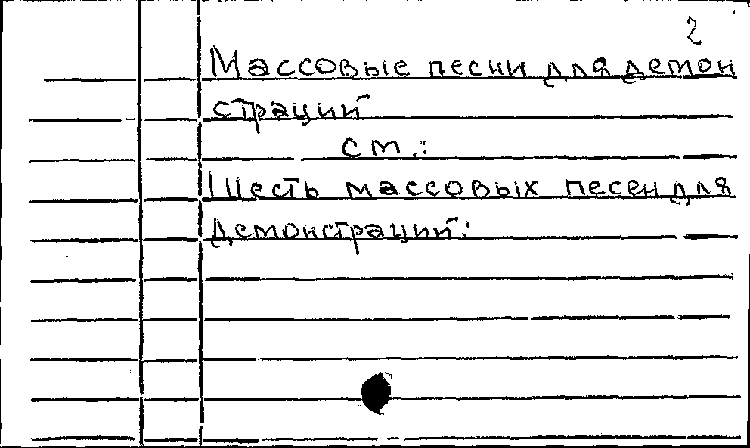 2
Массовые песни для демон
страций
см.:
Шесть массовых песен для
демонстраций: